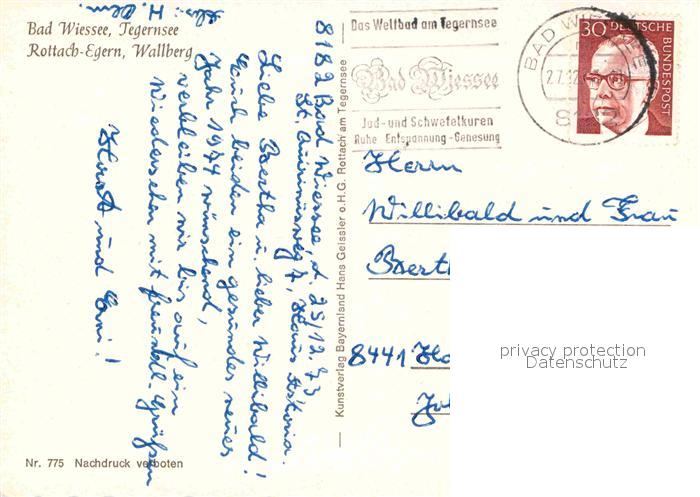 Bad Wiessee, Tegernsee
Rottach-Egern, Wallberg
8182 Bad Wiessee, d. 25/12.73
St. Quirinusweg 7, Haus Astoria.
Liebe Bertha u. lieber Willibald!
Euch beiden ein gesundes neues
Jahr 1974 wünschend,
verbleiben wir bis auf ein
Wiedersehen mit freundl. Grüßen
Horst und Erni!
Nr. 775 Nachdruck verboten
Kunstverlag Bayernland Hans Geissler o.H.G. Rottach am Tegernsee
Das Weltbad am Tegernsee
Bad Wiessee
Jod- und Schwefelkuren
Ruhe Entspannung - Genesung
BAD WIESSEE
30 DEUTSCHE
BUNDESPOST
Herrn
Willibald und Frau
8441
privacy protection
Datenschutz